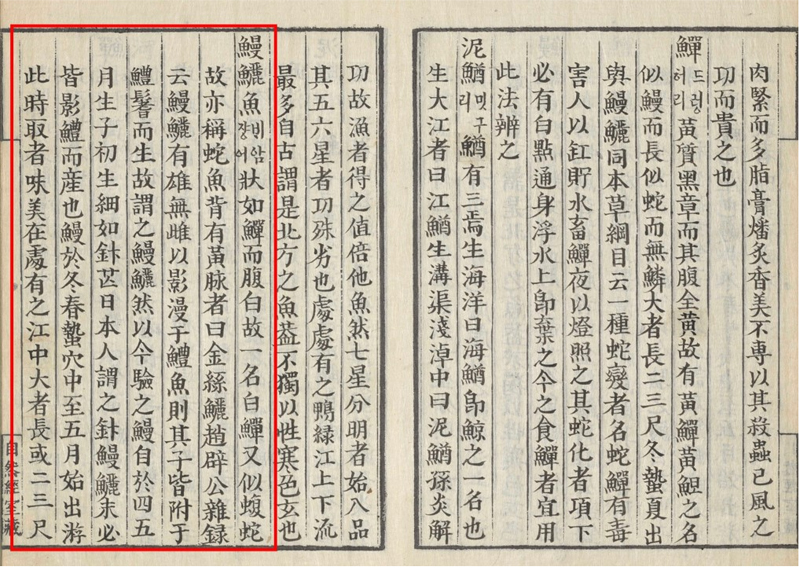 肉緊而多脂膏燔炙香美不專以其殺蟲已風之
功而貴之也
鱓드렁허리黃質黑章而其腹全黃故有黃鱓黃䱇之名
似鰻而長似蛇而無鱗大者長二三尺冬蟄夏出
與鰻鱺同本草綱目云一種蛇變者名蛇鱓有毒
害人以缸貯水畜鱓夜以燈照之其蛇化者項下
必有白點通身浮水上卽棄之今之食鱓者宜用
此法辨之
泥鰌밋구리鰌有三焉生海洋曰海鰌卽鯨之一名也
生大江者曰江鰌生溝渠淺淖中曰泥鰌孫炎解
功故漁者得之值倍他魚然七星分明者始八品
其五六星者功殊劣也處處有之鴨緑江上下流
最多自古謂是北方之魚葢不獨以性寒色玄也
鰻鱺魚ᄇᆡ암쟝어狀如鱓而腹白故一名白鱓又似蝮蛇
故亦稱蛇魚背有黃脉者曰金絲鱺趙辟公雜録
云鰻鱺有雄無雌以影漫于鱧魚則其子皆附于
鱧鬐而生故謂之鰻鱺然以今驗之鰻自於四五
月生子初生細如針芒日本人謂之針鰻鱺未必
皆影鱧而産也鰻於冬春蟄穴中至五月始出游
此時取者味美在處有之江中大者長或二三尺
自然經室藏